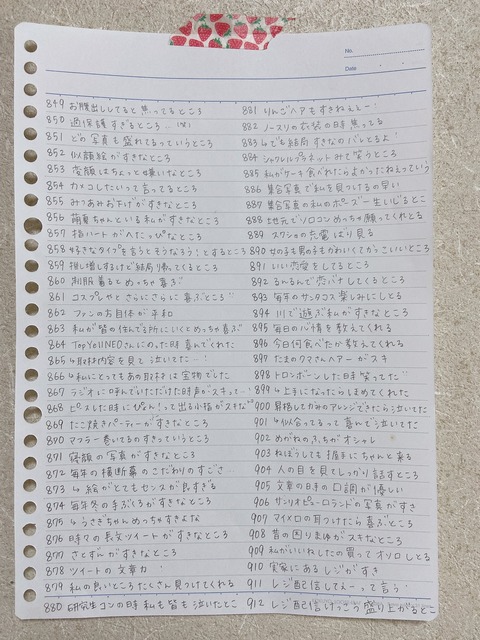 No.
Date
849 お腹出ししてると焦ってるところ
850 過保護すぎるところ…(笑)
851 どの写真も盛れてるっていうところ
852 似顔絵がすきなところ
853 変顔はちょっと嫌いなところ
854 カメコしたいって言ってるところ
855 みつあみおさげがすきなところ
856 萌夏ちゃんといる私がすきなところ
857 指ハートがへたっぴなところ
858 好きなタイプを言うとそうなろう!とするところ
859 推し増しするけど結局帰ってくるところ
860 制服着るとめっちゃ喜ぶ
861 コスプレやとさらにさらに喜ぶところ
862 ファンのお自体が平和
863 私が皆の住んでる所にいくとめっちゃ喜ぶ
864 TopYellNEOさんにのった時喜んでくれた
865 ↳取材内容を見て泣いてた…!
866 ↳私にとってもあの取材は宝物でした
867 ラジオに呼んでいただけた時声がスキって…!
868 ピースした時にぴょん!って出る小指がスキな
869 たこ焼きパーティーがすきなところ
870 マフラー巻いてるのすきっていうところ
871 寝顔の写真がすきなところ
872 毎年の横断幕のこだわりのすごさ
873 ↳絵がとてもセンスが良すぎる
874 毎年冬の手ぶくろがすきなところ
875 ↳うさきちゃんめっちゃすきよな
876 時々の長文ツイートがすきなところ
877 さとずんがすきなところ
878 ツイートの文章力
879 私の良いところたくさん見つけてくれる
880 研究生コンの日時私も皆も泣いたとこ
881 りんごヘアもすきねえとー!
882 ノースリの衣装の日時焦ってる
883 ↳でも結局すきなのバレとるよ
884 シャクレルプラネットみて笑うところ
885 私がケーキ食べれたらよかったねえっていう
886 集合写真で私を見つけるの早い
887 集合写真の私のポーズ一生いじるとこ
888 地元でソロコンめっちゃ願ってくれとる
889 スクショの充電ばり見る
890 女の子も男の子もかわいくてかっこいいところ
891 いい恋愛をしてるところ
892 るんるんで恋バナしてくるところ
893 毎年のサンタコス楽しみにしとる
894 川で遊ぶ私がすきなところ
895 毎日の心情を教えてくれる
896 今日何食べたか教えてくれる
897 たまのクマさんヘアーがスキ
898 トロンボーンした日時笑ってた
899 ↳上手になったらしまめてくれた
900 昇格してかみのアレンジできたら泣いてた
901 ↳似合ってるって喜んで泣いてた
902 めがねのふちがオシャレ
903 ねぼうしても握手にちゃんと来る
904 人の目を見てしっかり話すところ
905 文章の日時の口調が優しい
906 サンリオピューロランドの写真がすき
907 マイメロの耳つけたら喜ぶところ
908 昔の困りまゆがスキなところ
909 私がいいねしたの買ってオソロしとる
910 実家にあるレジがすき
911 レジ配信してえーって言う
912 レジ配信けっこう盛り上がるとこ